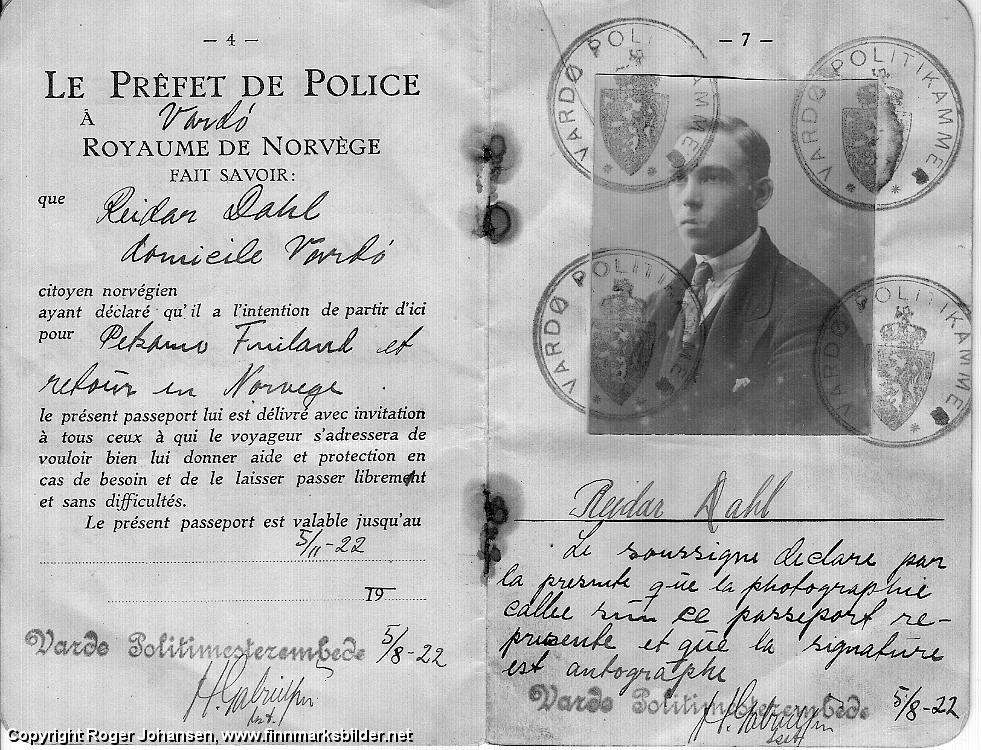 — 4 —
LE PRÊFET DE POLICE
À Vardö
ROYAUME DE NORVÈGE
FAIT SAVOIR:
que Reidar Dahl
domicile Vardö
citoyen norvégien
ayant déclaré qu'il a l'intention de partir d'ici
pour Petsamo Finland et
retour en Norvege.
le présent passeport lui est délivré avec invitation
à tous ceux à qui le voyageur s'adressera de
vouloir bien lui donner aide et protection en
cas de besoin et de le laisser passer librement
et sans difficultés.
Le présent passeport est valable jusqu'au
5/11-22
19
Vardø Politimesterembede 5/8-22
Copyright Roger Johansen, www.finnmarksbilder.net
— 7 —
VARDØ POLITIKAMME
VARDØ POLITIKAMME
VARDØ POLITIK
VARDØ POLITIKAMME
Reidar Dahl
Le soussigne declare par
la presente que la photographie
collee sur ce passeport re-
presente et que la signature
est autographe
Vardø Politimesterembede 5/8-22